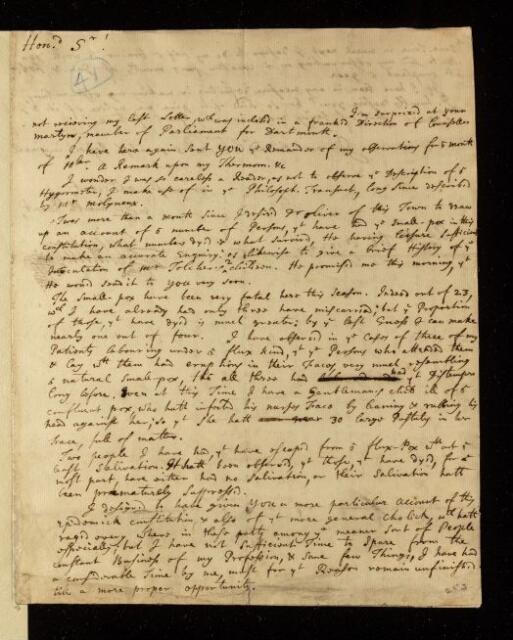 Honᵈ. Sʳ!
41
I'm surprised at your
not receiving my last Letter, wᶜʰ was inclosed in a frank'd Direction of
martyn, member of Parliament for Dartmouth.
I have here again sent you yᵉ Remainder of my observations for month
of 10ber. A Remark upon my Thermom. &c
I wonder I was so careless a Reader, as not to observe yᵉ Description of
Hygrometer, I make use of in yᵉ Philosoph. Transact, long since described
by Mʳ Molyneux.
Twas more than a month since I desir'd Dʳ oliver of this Town to draw
up an account of number of Persons, yᵗ have had yᵉ small-pox in this
constitution, what number dyed & what surviv'd. He having leisure sufficient
to make an accurate Enquiry; as likewise to give a brief History of yᵉ
Inoculation of mʳ children. He promised me this morning, yᵗ
He would send it to you very soon.
The Small-pox have been very fatal here this season. Indeed out of 23,
wᶜʰ I have already had only three have miscarried; but yᵉ Proportion
of those, yᵗ have dyed is much greater; by yᵉ best Guess I can make
nearly one out of four. I have observed in yᵉ Cases of three of my
Patients labouring under flux kind, yᵗ yᵉ Persons who attended them
& lay wᵗʰ them had eruptions in their Faces very much resembling
natural small-pox, tho all three had had yᵗ Distemper
long before. Even at this Time I have a Gentleman's child ill of
confluent pox, who hath infected his nurses Face by leaning & rubbing his
head against her; so yᵗ she hath 30 large Pustules in her
Face, full of matter.
Two people I have had, yᵗ have escaped from flux-Pox wᵗʰ out
least Salivation. It hath been observed, yᵗ those, yᵗ have dyed, for
most part, have either had no Salivation, or their Salivation hath
been prematurely suppressed.
I designed to have given you a more particular account of this
epidemick constitution, & also of yᵗ more general Cholick, wᶜʰ hath
rag'd every where in these parts among meaner sort of People
especially; but I have not sufficient Time to spare from the
constant Business of my Profession, & some few Things, I have had
a considerable Time by me, must for yᵗ Reason remain unfinish'd
till a more proper opportunity.
253